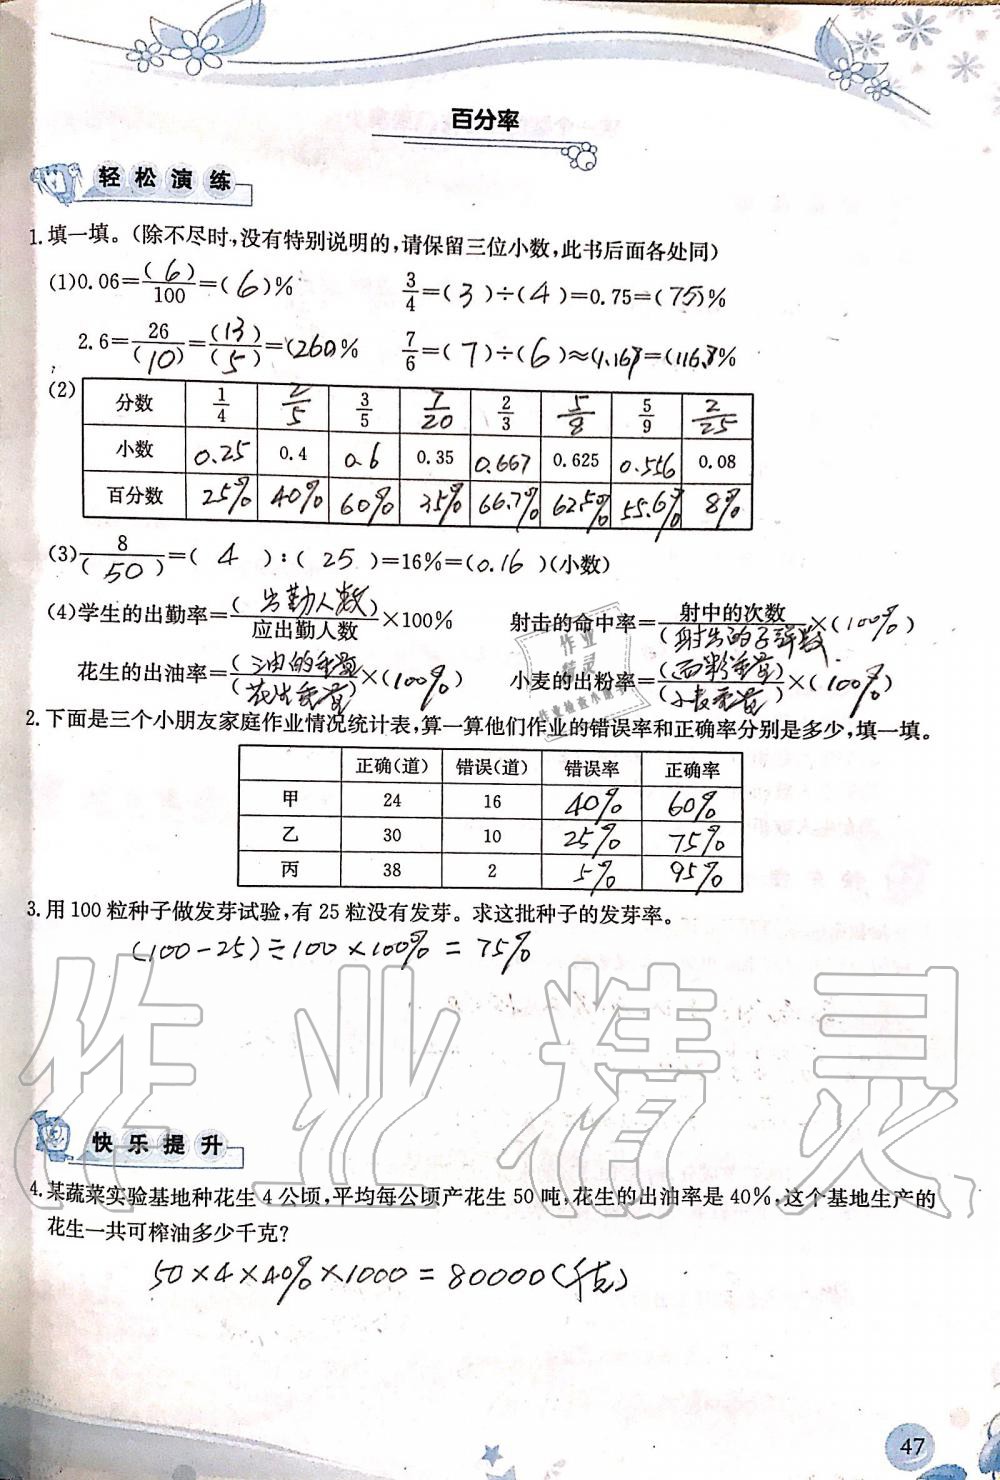 百分率
轻松演练
1.填一填。(除不尽时,没有特别说明的,请保留三位小数,此书后面各处同)
(1)0.06=(6)/100=(6)% 3/4=(3)÷(4)=0.75=(75)%
2.6=26/(10)=(13)/(5)=(260)% 7/6=(7)÷(6)≈(1.167)=(116.7)%
(2)
分数 1/4 2/5 3/5 7/20 2/3 5/8 5/9 2/25
小数 0.25 0.4 0.6 0.35 0.667 0.625 0.556 0.08
百分数 25% 40% 60% 35% 66.7% 62.5% 55.6% 8%
(3)8/(50)=(4):(25)=16%=(0.16)(小数)
(4)学生的出勤率=(出勤人数)/应出勤人数×100% 射击的命中率=射中的次数/(射出的子弹数)×(100%)
花生的出油率=(油的重量)/(花生重量)×(100%) 小麦的出粉率=(面粉重量)/(小麦重量)×(100%)
2.下面是三个小朋友家庭作业情况统计表,算一算他们作业的错误率和正确率分别是多少,填一填。
正确(道) 错误(道) 错误率 正确率
甲 24 16 40% 60%
乙 30 10 25% 75%
丙 38 2 5% 95%
3.用100粒种子做发芽试验,有25粒没有发芽。求这批种子的发芽率。
(100-25)÷100×100%=75%
作业精灵
快乐提升
4.某蔬菜实验基地种花生4公顷,平均每公顷产花生50吨,花生的出油率是40%,这个基地生产的
花生一共可榨油多少千克?
50×4×40%×1000=80000(千克)
47